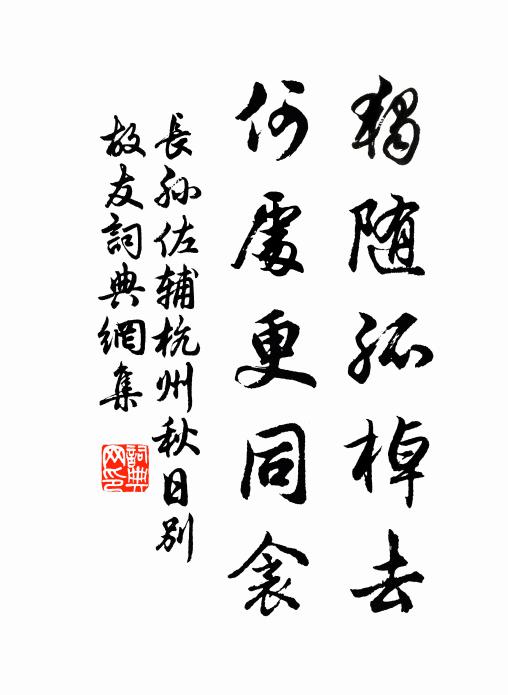 獨随孤棹去
何處更同衾
長孙佐辅杭州秋日别
故友詞典網集
詞典
网印